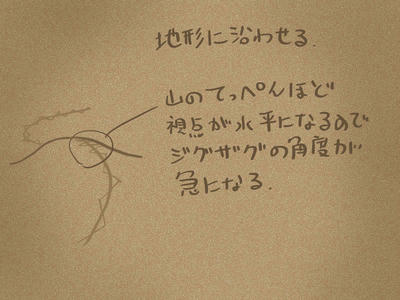 地形に沿わせる.
山のてっぺんほど
視点が水平になるので
ジグザグの角度が
急になる.